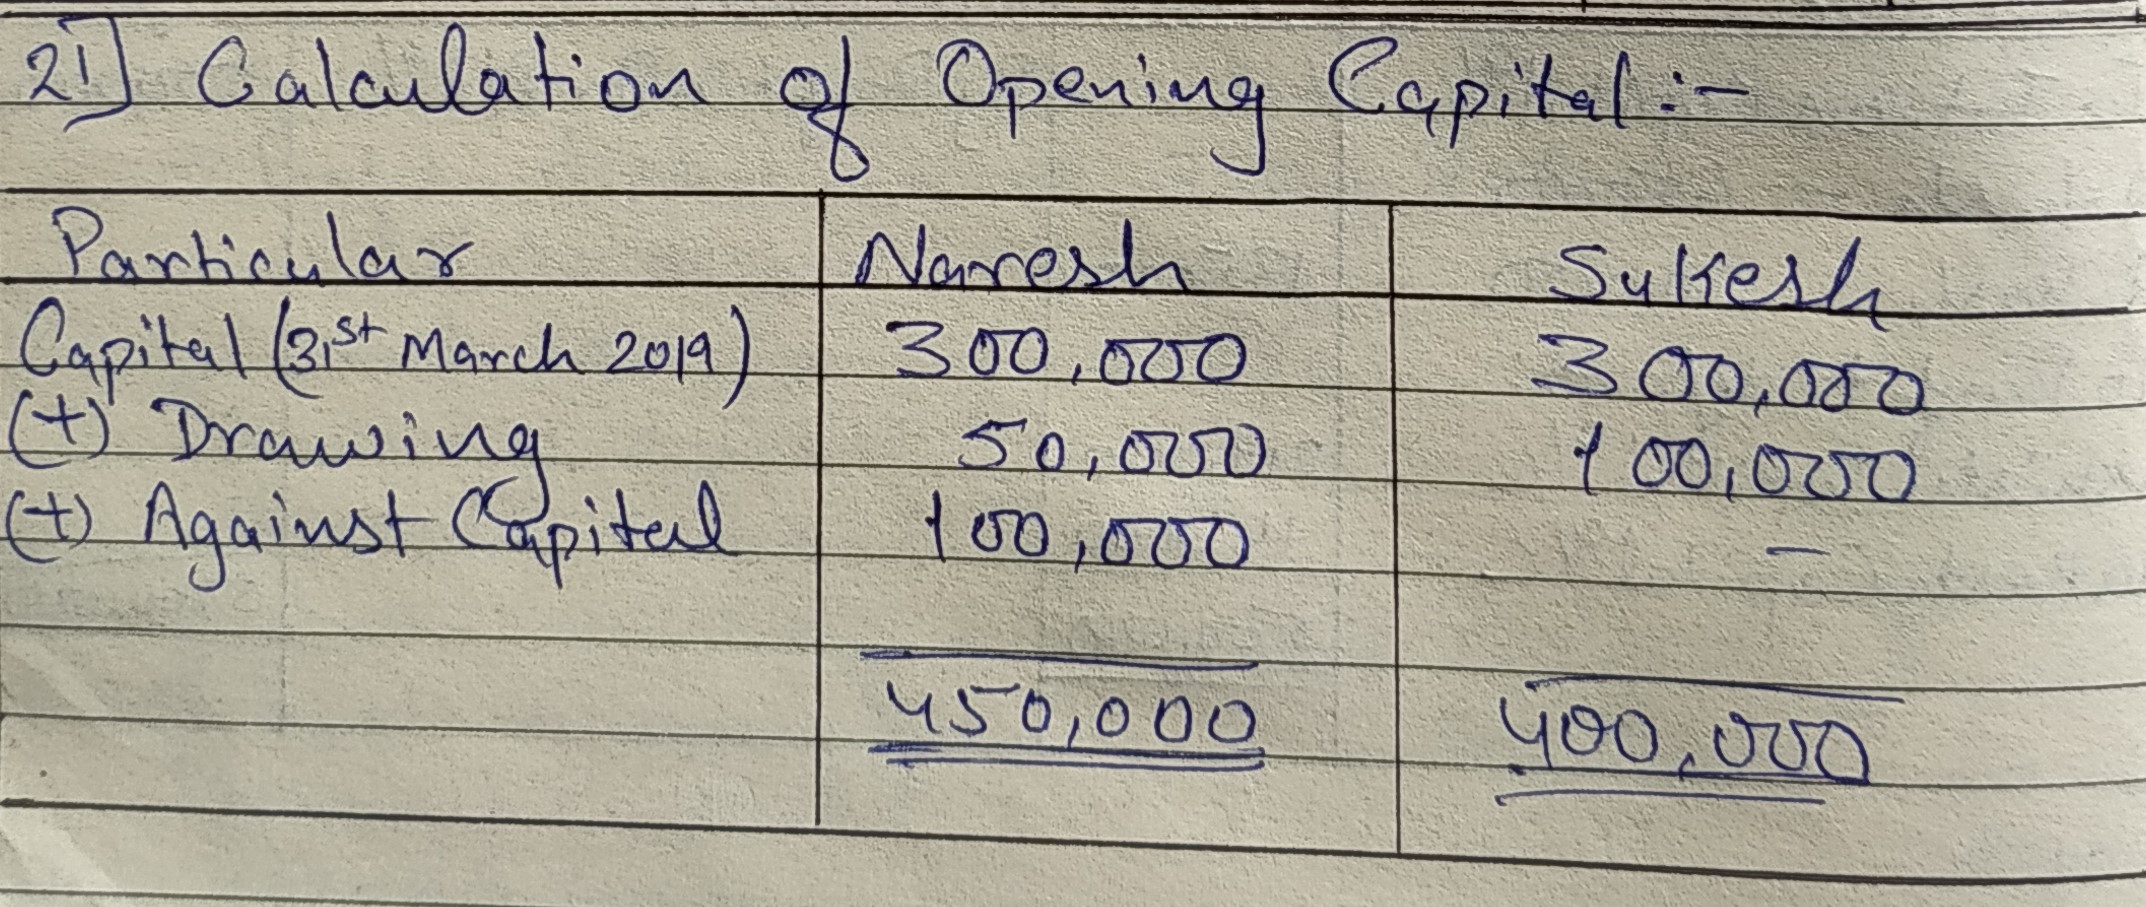 21] Calculation of Opening Capital :-
Particular Naresh Sukesh
Capital (31st March 2019) 300,000 300,000
(+) Drawing 50,000 100,000
(+) Against Capital 100,000 -
450,000 400,000